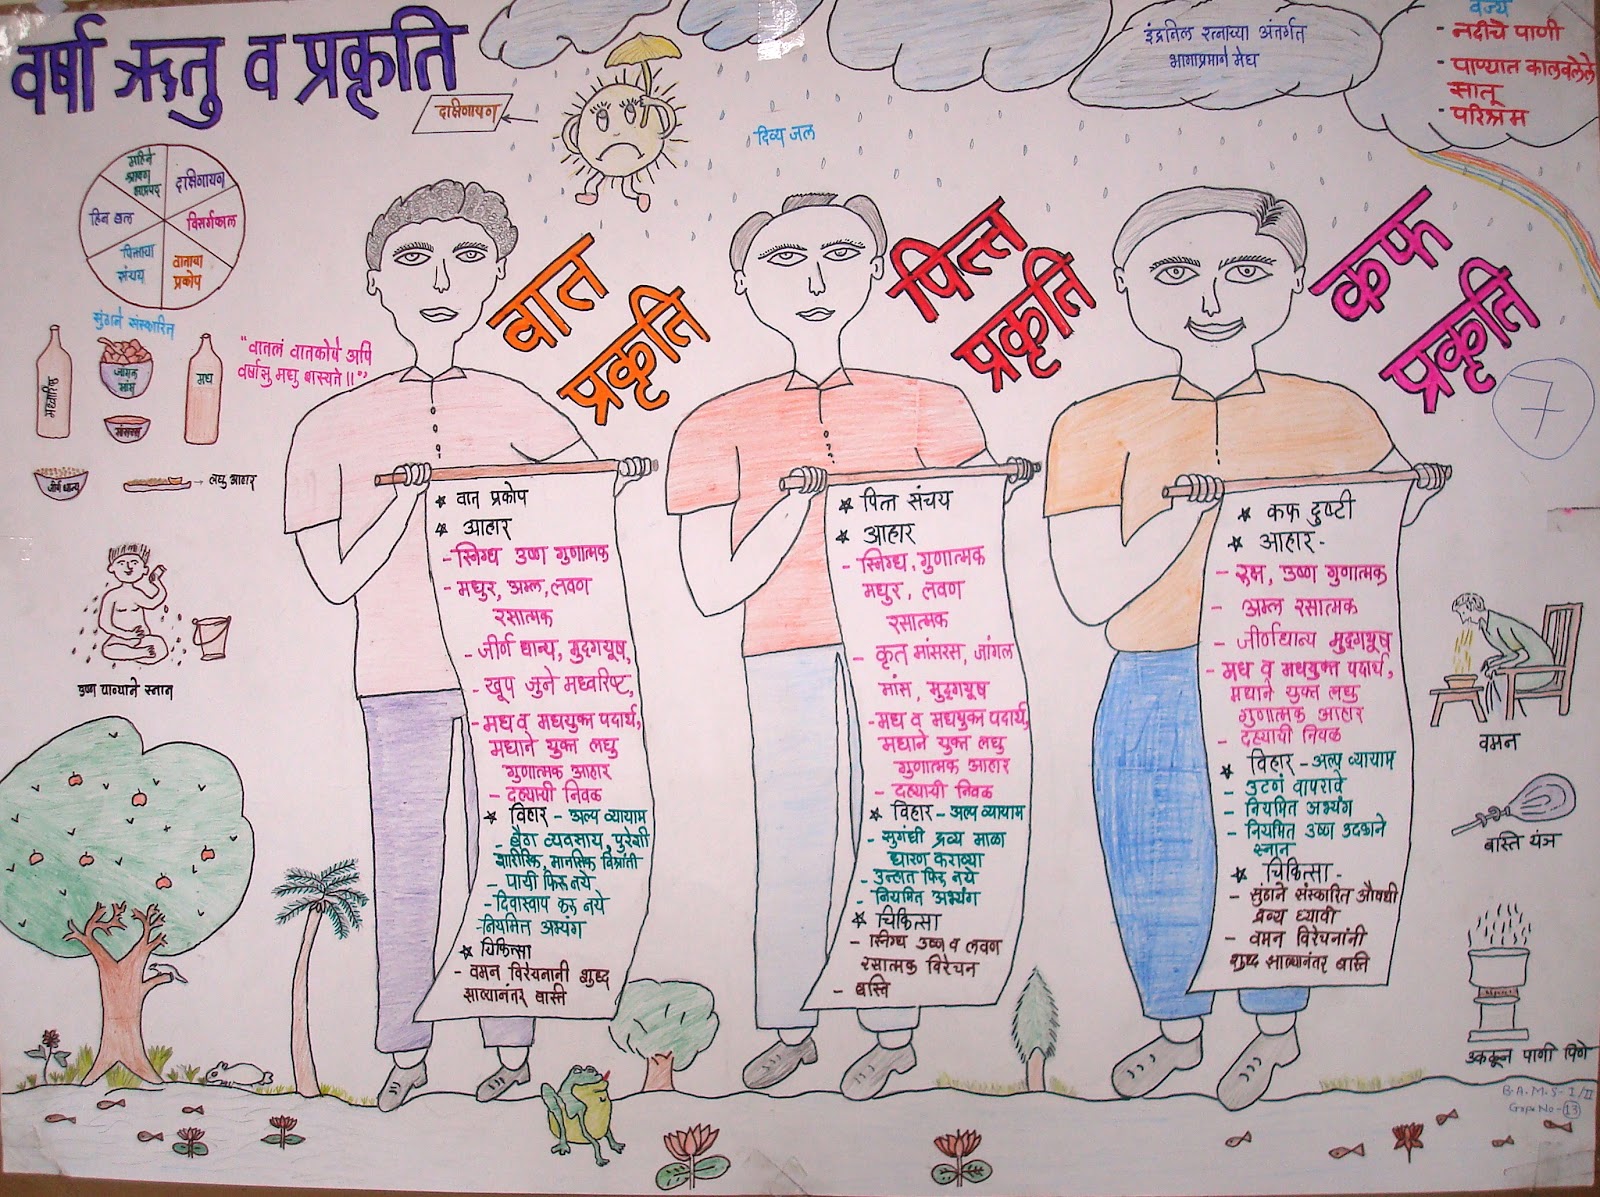 वर्षा ऋतु व प्रकृति
दक्षिणायण
दिव्य जल
इंद्रनिल रत्नाच्या अंतर्गत
भागाप्रमाणे मेघ
वर्ज्य
- नदीचे पाणी
- पाण्यात कालवलेले
सातू
- परिश्रम
महिने
श्रावण
भाद्रपद
दक्षिणायण
हिन बल
विसर्गकाल
पित्ताचा
संचय
वाताचा
प्रकोप
सुंठाने संस्कारित
मध्वारिष्ट
जांगल
मांस
मध
मांसरस
जीर्ण धान्य
लघु आहार
"वातलं वातकोपे अपि
वर्षासु मधु शस्यते॥"
उष्ण पाण्याने स्नान
वात
प्रकृति
* वात प्रकोप
* आहार
- स्निग्ध उष्ण गुणात्मक
- मधुर, अम्ल, लवण
रसात्मक
- जीर्ण धान्य, मुद्गयूष,
- खूप जुने मध्वरिष्ट,
- मध व मधयुक्त पदार्थ,
मधाने युक्त लघु
गुणात्मक आहार
- दह्याची निवक
* विहार - अल्प व्यायाम
- बैठा व्यवसाय, पुरेशी
शारीरिक, मानसिक विश्रांती
- पायी फिरू नये
- दिवास्वाप करू नये
- नियमित अभ्यंग
* चिकित्सा
- वमन विरेचनानी शुध्द
झाल्यानंतर बास्ति
पित्त
प्रकृति
* पित्त संचय
* आहार
- स्निग्ध, गुणात्मक
मधुर, लवण
रसात्मक
- कृत मांसरस, जांगल
मांस, मुद्गयूष
- मध व मधयुक्त पदार्थ,
मधाने युक्त लघु
गुणात्मक आहार
- दह्याची निवक
* विहार - अल्प व्यायाम
- सुगंधी द्रव्य माळा
धारण कराव्या
- उन्हात फिरू नये
- नियमित अभ्यंग
* चिकित्सा
- स्निग्ध उष्ण व लवण
रसात्मक विरेचन
- बस्ति
कफ
प्रकृति
7
* कफ दुष्टी
* आहार -
- रुक्ष, उष्ण गुणात्मक
- अम्ल रसात्मक
- जीर्णधान्य मुद्गयूष
- मध व मधयुक्त पदार्थ,
मधाने युक्त लघु
गुणात्मक आहार
- दह्याची निवक
* विहार - अल्प व्यायाम
- उटणं वापरावे
- नियमित अभ्यंग
- नियमित उष्ण उदकाने
स्नान
* चिकित्सा -
- सुंठाने संस्कारित औषधी
द्रव्य घ्यावी
- वमन विरेचनांनी
शुध्द झाल्यानंतर बास्ति
वमन
बास्ति यंत्र
उकळून पाणी पिणे
B.A.M.S - I/II
Grop No - 13